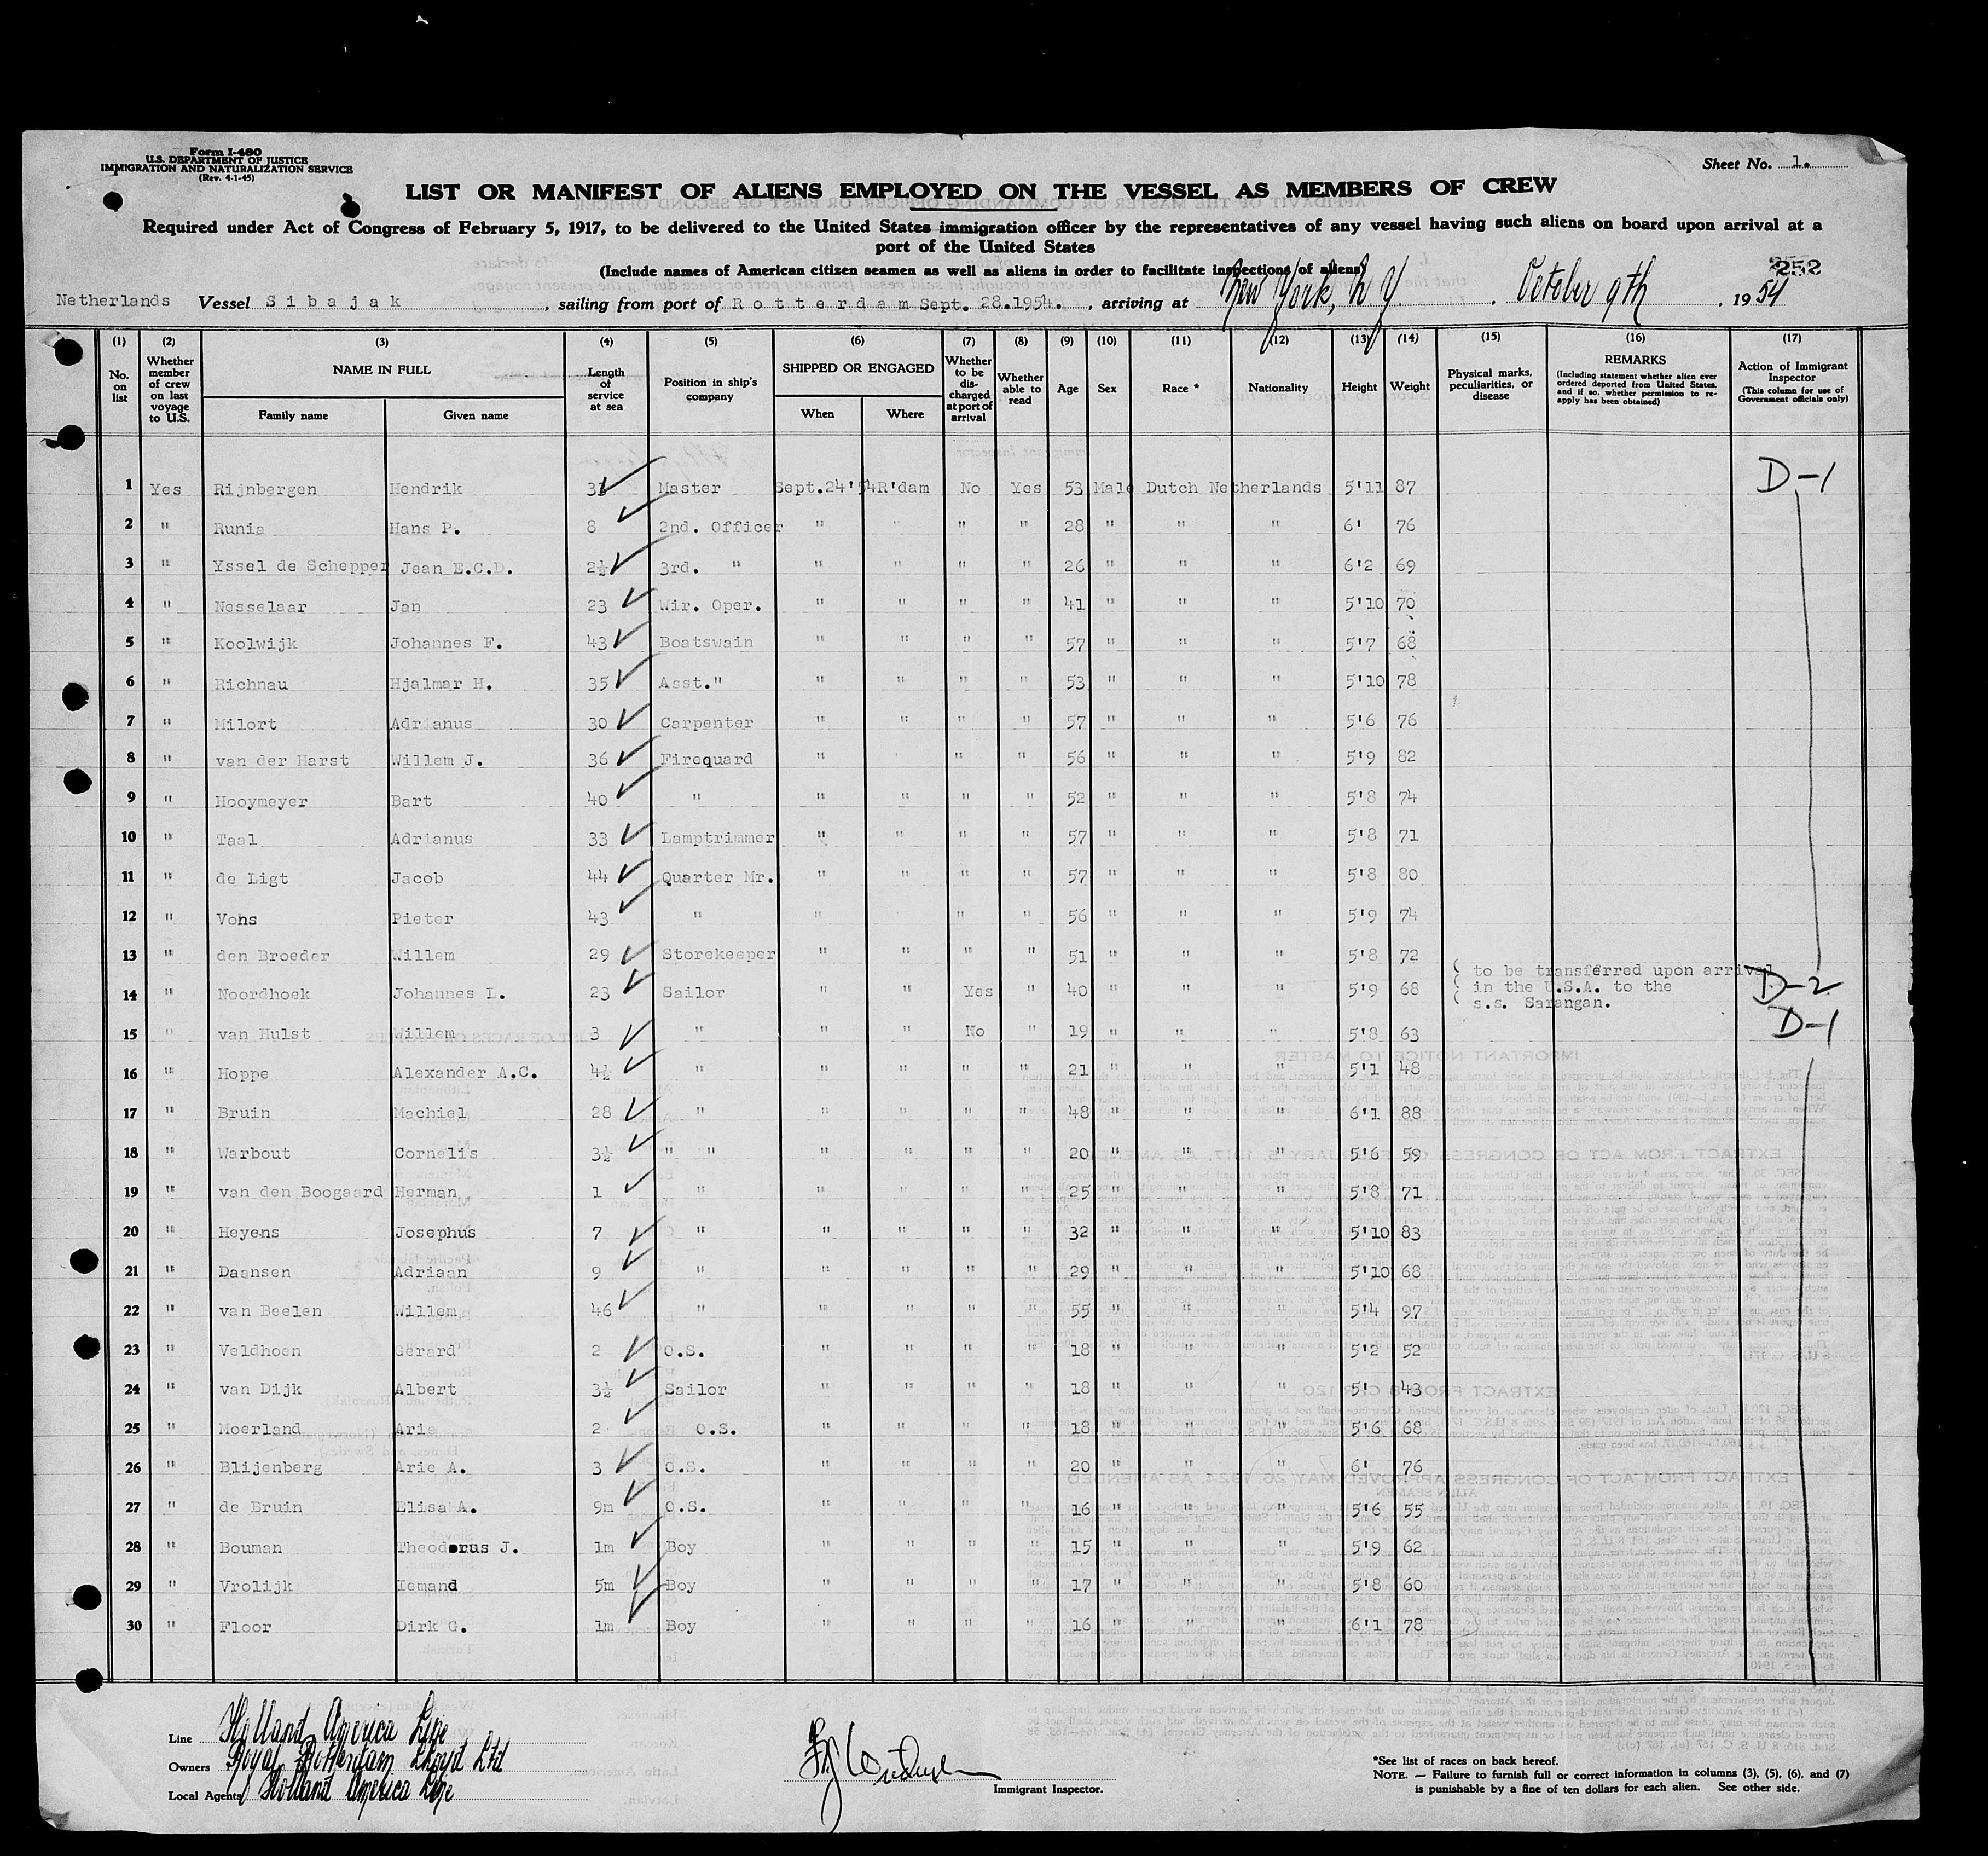 Form I-480
U.S. DEPARTMENT OF JUSTICE
IMMIGRATION AND NATURALIZATION SERVICE
(Rev. 4-1-45)
Sheet No. 1.
LIST OR MANIFEST OF ALIENS EMPLOYED ON THE VESSEL AS MEMBERS OF CREW
Required under Act of Congress of February 5, 1917, to be delivered to the United States immigration officer by the representatives of any vessel having such aliens on board upon arrival at a
port of the United States
(Include names of American citizen seamen as well as aliens in order to facilitate inspections of aliens)
252
Netherlands Vessel Sibajak, sailing from port of Rotterdam Sept. 28.1954., arriving at New York, N Y. October 9th, 1954
(1) (2) (3) (4) (5) (6) (7) (8) (9) (10) (11) (12) (13) (14) (15) (16) (17)
No. on list
Whether member of crew on last voyage to U.S.
NAME IN FULL
Family name Given name
Length of service at sea
Position in ship's company
SHIPPED OR ENGAGED
When Where
Whether to be discharged at port of arrival
Whether able to read
Age Sex Race * Nationality Height Weight
Physical marks, peculiarities, or disease
REMARKS
(Including statement whether alien ever ordered deported from United States, and if so, whether permission to reapply has been obtained)
Action of Immigrant Inspector
(This column for use of Government officials only)
1 Yes Rijnbergen Hendrik Master Sept.24'54 R'dam No Yes 53 Male Dutch Netherlands 5'11 87 D-1
2 " Runia Hans P. 8 2nd. Officer " " " " 28 " " " 6' 76
3 " Yssel de Schepper Jean E.C.D. 2½ 3rd. " " " " " 26 " " " 6'2 69
4 " Nesselaar Jan 23 Wir. Oper. " " " " 41 " " " 5'10 70
5 " Koolwijk Johannes F. 43 Boatswain " " " " 57 " " " 5'7 68
6 " Richnau Hjalmar H. 35 Asst." " " " " 53 " " " 5'10 78
7 " Milort Adrianus 30 Carpenter " " " " 57 " " " 5'6 76
8 " van der Harst Willem J. 36 Firequard " " " 56 " " " 5'9 82
9 " Hooymeyer Bart 40 " " " " " 52 " " " 5'8 74
10 " Taal Adrianus 33 Lamptrimmer " " " " 57 " " " 5'8 71
11 " de Ligt Jacob 44 Quarter Mr. " " " " 57 " " " 5'8 80
12 " Vohs Pieter 43 " " " " " 56 " " " 5'9 74
13 " den Broeder Willem 29 Storekeeper " " " " 51 " " " 5'8 72
14 " Noordhoek Johannes L. 23 Sailor " " Yes " 40 " " " 5'9 68 ( to be transferred upon arrival
( in the U.S.A. to the
( s.s. Sarangan. D-2
15 " van Hulst Willem 3 " " " No " 19 " " " 5'8 63 D-1
16 " Hoppe Alexander A.C. 4½ " " " " " 21 " " " 5'1 48
17 " Bruin Machiel 28 " " " " " 48 " " " 6'1 88
18 " Warbout Cornelis 3½ " " " " " " 20 " " " 5'6 59
19 " van den Boogaard Herman 1 " " " " " 25 " " " 5'8 71
20 " Heyens Josephus 7 " " " " " 32 " " " 5'10 83
21 " Daansen Adriaan 9 " " " " " 29 " " " 5'10 68
22 " van Beelen Willem 46 " " " " " 55 " " " 5'4 97
23 " Veldhoen Gerard 2 O.S. " " " " 18 " " " 5'2 52
24 " van Dijk Albert 3½ Sailor " " " " 18 " " " 5' 43
25 " Moerland Arie 2 O.S. " " " " 18 " " " 5'6 68
26 " Blijenberg Arie A. 3 O.S. " " " " 20 " " " 6' 76
27 " de Bruin Elisa A. 9m O.S. " " " " 16 " " " 5'6 55
28 " Bouman Theodorus J. 1m Boy " " " " 15 " " " 5'9 62
29 " Vrolijk Iemand 5m Boy " " " " 17 " " " 5'8 60
30 " Floor Dirk G. 1m Boy " " " " 16 " " " 6'1 78
Line Holland America Line
Owners Royal Rotterdam Lloyd Ltd
Local Agents Holland America Line
Immigrant Inspector.
*See list of races on back hereof.
NOTE. — Failure to furnish full or correct information in columns (3), (5), (6), and (7)
is punishable by a fine of ten dollars for each alien. See other side.